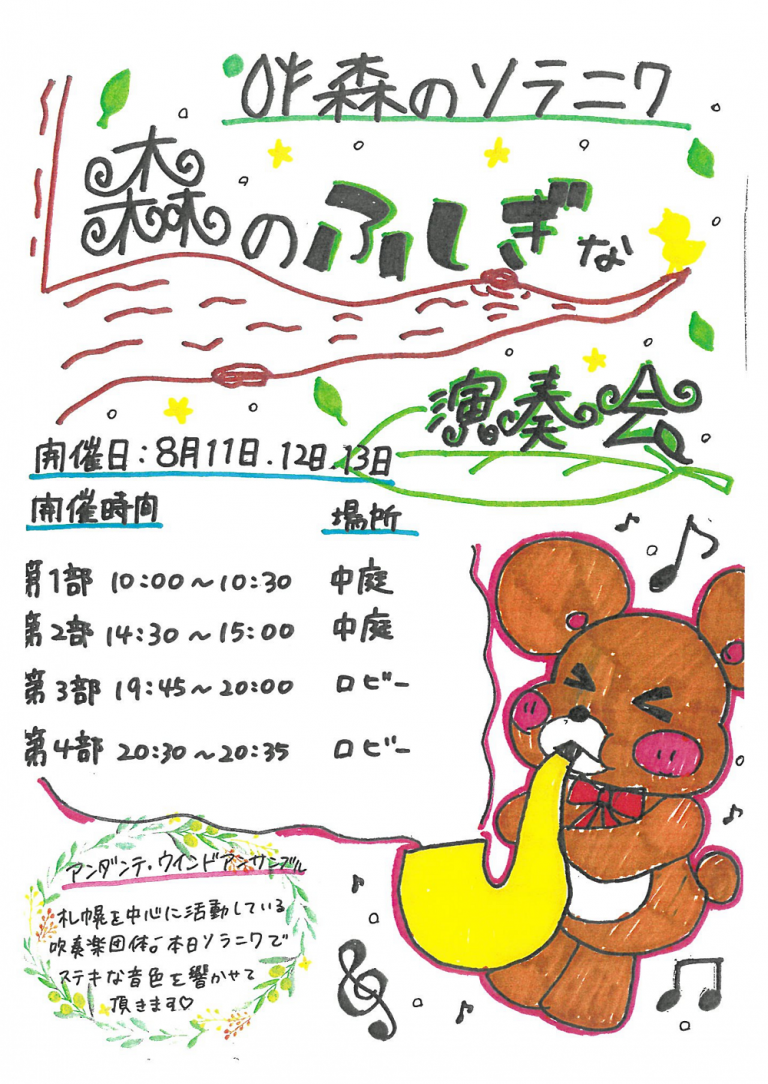 森のソラニワ
森のふしぎな
演奏会
開催日：8月11日.12日.13日
開催時間 場所
第1部 10:00～10:30 中庭
第2部 14:30～15:00 中庭
第3部 19:45～20:00 ロビー
第4部 20:30～20:35 ロビー
アンダンテ・ウインドアンサンブル
札幌を中心に活動している
吹奏楽団体。本日ソラニワで
ステキな音色を響かせて
頂きます♡